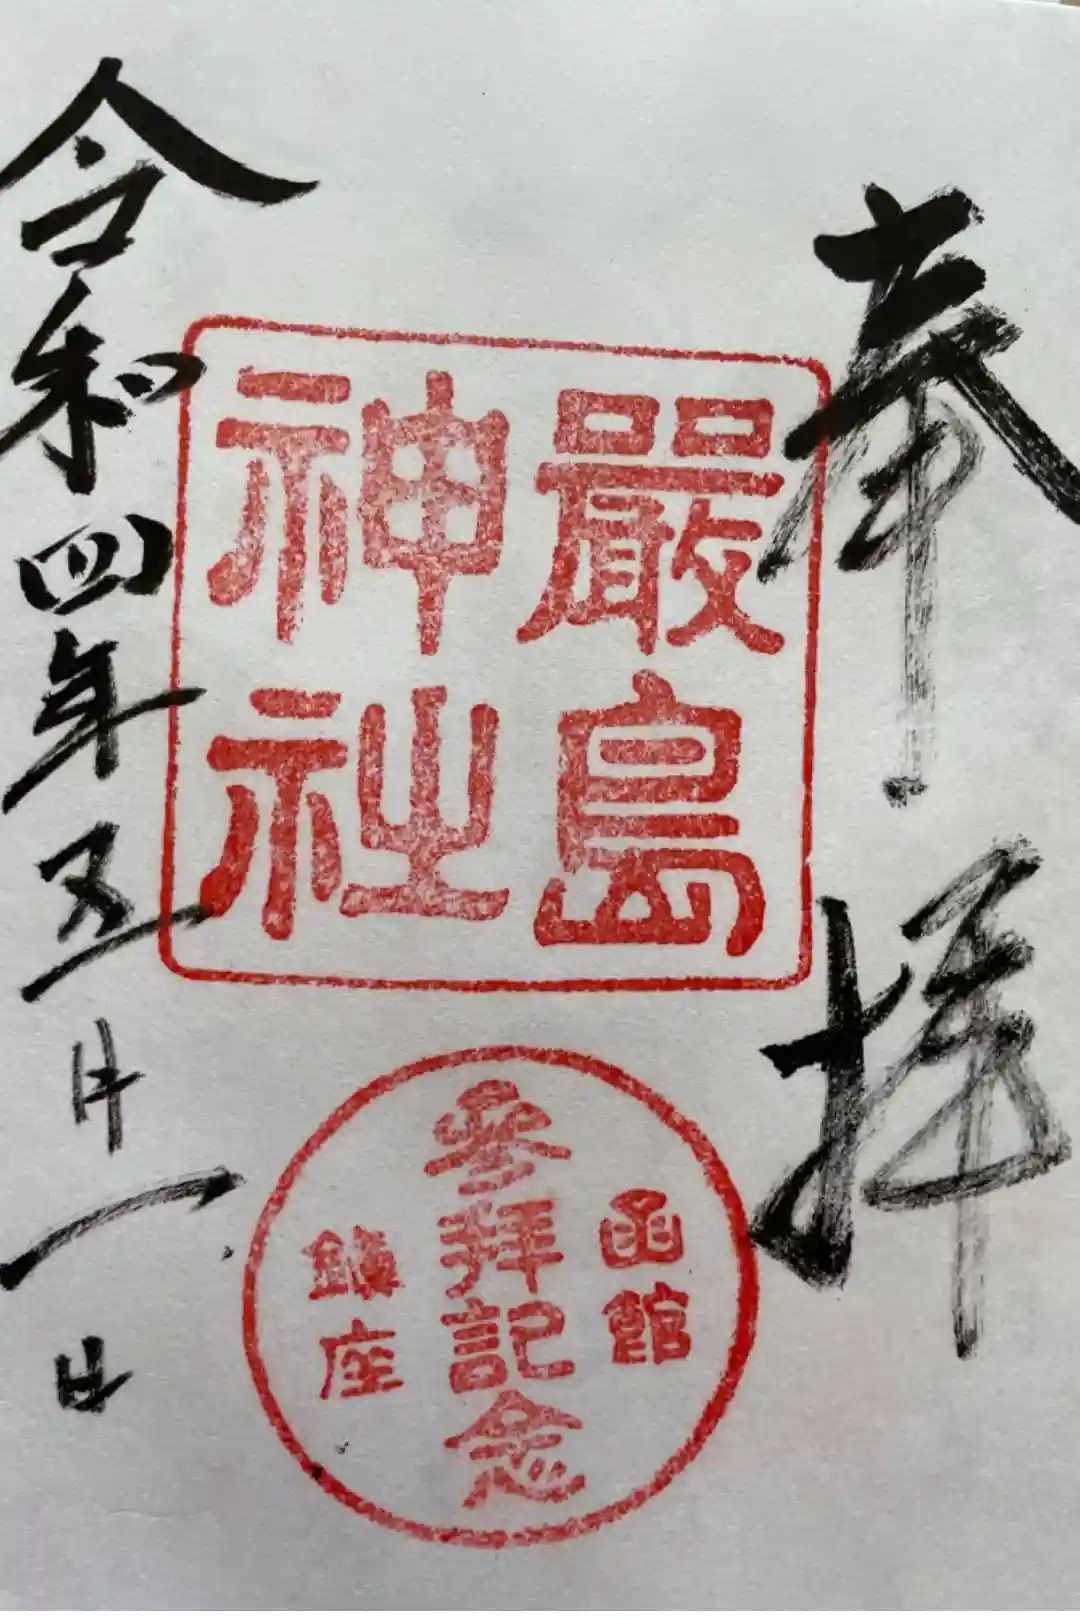 奉拝
嚴島
神社
函館
參拜記念
鎮座
令和四年五月一日